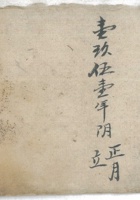 壹玖伍壹年阴
正月
立